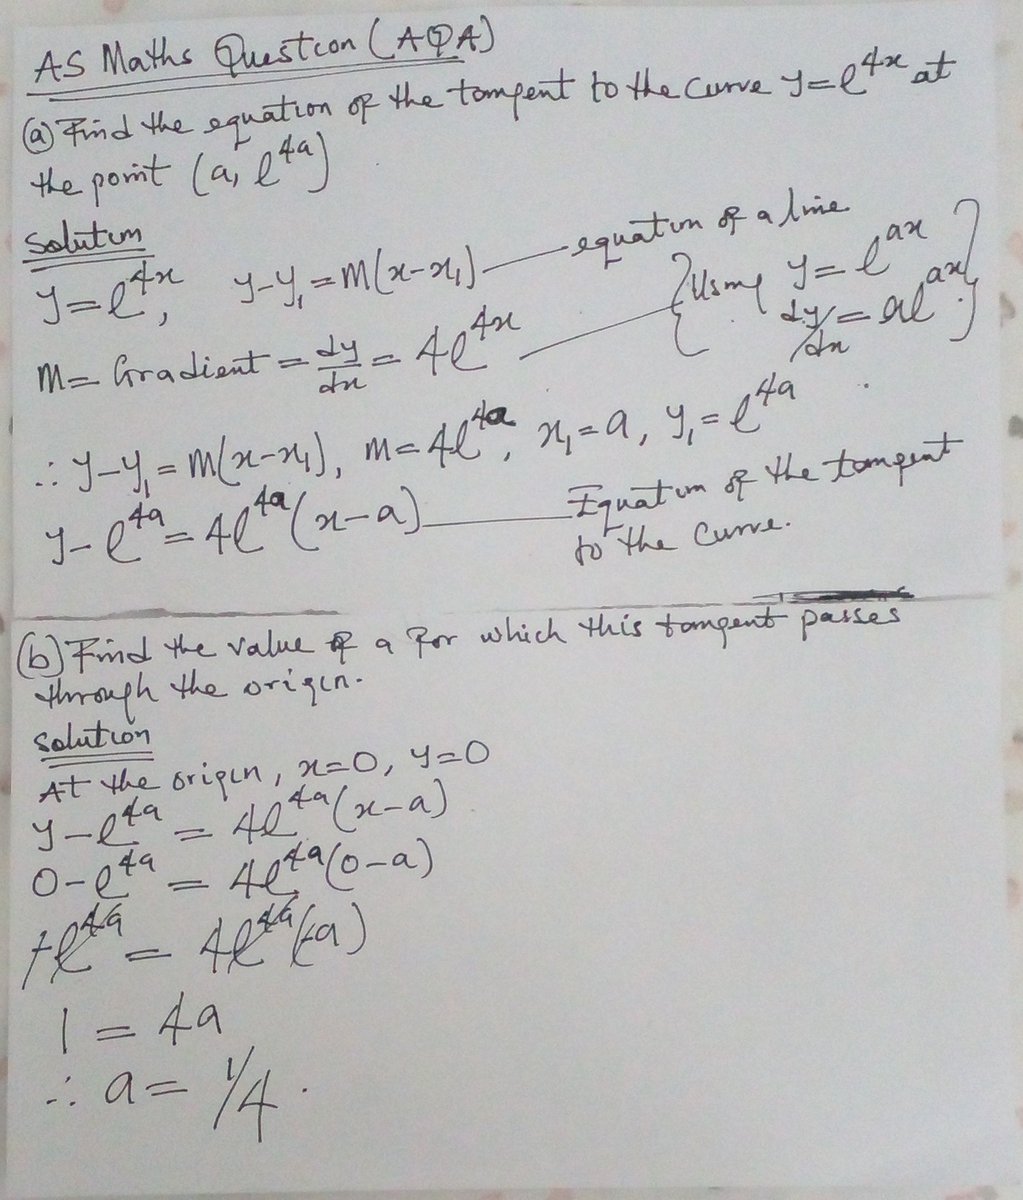 AS Maths Question (AQA)
(a) Find the equation of the tangent to the curve y=e^{4x} at
the point (a, e^{4a})
Solution
y=e^{4x}, y-y₁=m(x-x₁) — equation of a line
m= Gradient = dy/dx = 4e^{4x} — {Using y=e^{ax}
dy/dx = ae^{ax}.}
∴ y-y₁=m(x-x₁), m=4e^{4a}, x₁=a, y₁=e^{4a}
y-e^{4a}=4e^{4a}(x-a) — Equation of the tangent
to the curve.
(b) Find the value of a for which this tangent passes
through the origin.
Solution
At the origin, x=0, y=0
y-e^{4a} = 4e^{4a}(x-a)
0-e^{4a} = 4e^{4a}(0-a)
-e^{4a} = 4e^{4a}(-a)
1 = 4a
∴ a = 1/4.